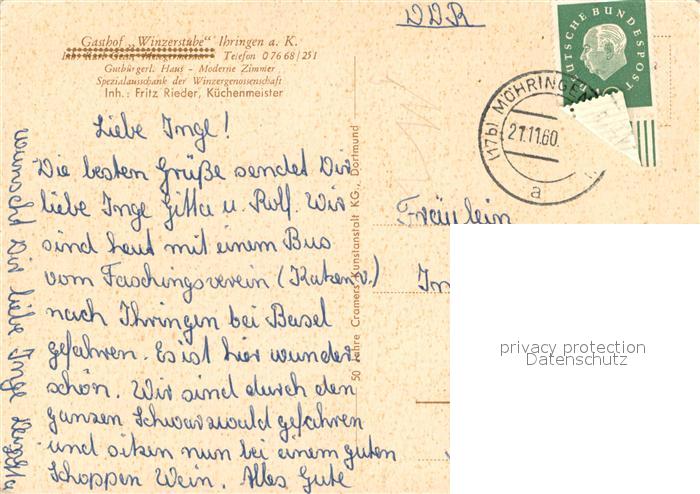 DDR
Gasthof „Winzerstube“ Ihringen a. K.
Telefon 0 76 68 / 251
Gutbürgerl. Haus - Moderne Zimmer
Spezialausschank der Winzergenossenschaft
Inh.: Fritz Rieder, Küchenmeister
DEUTSCHE BUNDESPOST
(17b) MÖHRINGEN
21.11.60.
a
Liebe Inge!
Die besten Grüße sendet Dir
liebe Inge Gitta u. Rolf. Wir
sind heut mit einem Bus
vom Faschingsverein (Katzenv.)
nach Ihringen bei Basel
gefahren. Es ist hier wunder
schön. Wir sind durch den
ganzen Schwarzwald gefahren
und sitzen nun bei einem guten
Schoppen Wein. Alles Gute
wünscht Dir liebe Inge
50 Jahre Cramers Kunstanstalt KG., Dortmund
Fräulein
In
privacy protection
Datenschutz